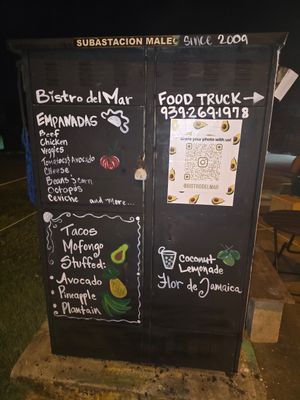 SUBASTACION MALEC Since 2009
Bistro del Mar
EMPANADAS
Beef
Chicken
Veggies
Tomatoes/Avocado
Cheese
Beans & corn
Octopus
Ceviche and more...
Tacos
Mofongo
Stuffed:
Avocado
Pineapple
Plantain
FOOD TRUCK →
939-269-1978
Share your photo with us!
@BISTRODELMAR
Coconut
Lemonade
Flor de Jamaica